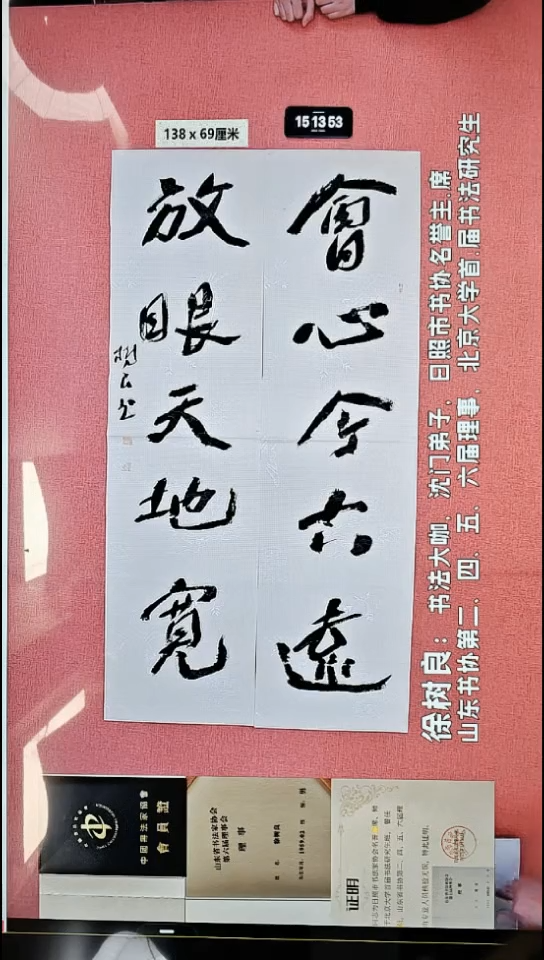 138 x 69厘米
15 13 53
會心今古遠
放眼天地寬
樹良书
徐树良：书法大咖、沈门弟子、日照市书协名誉主席
山东书协第二、四、五、六届理事、北京大学首届书法研究生
中國書法家協會
會員證
山东省书法家协会
第六届理事会
理事
证明